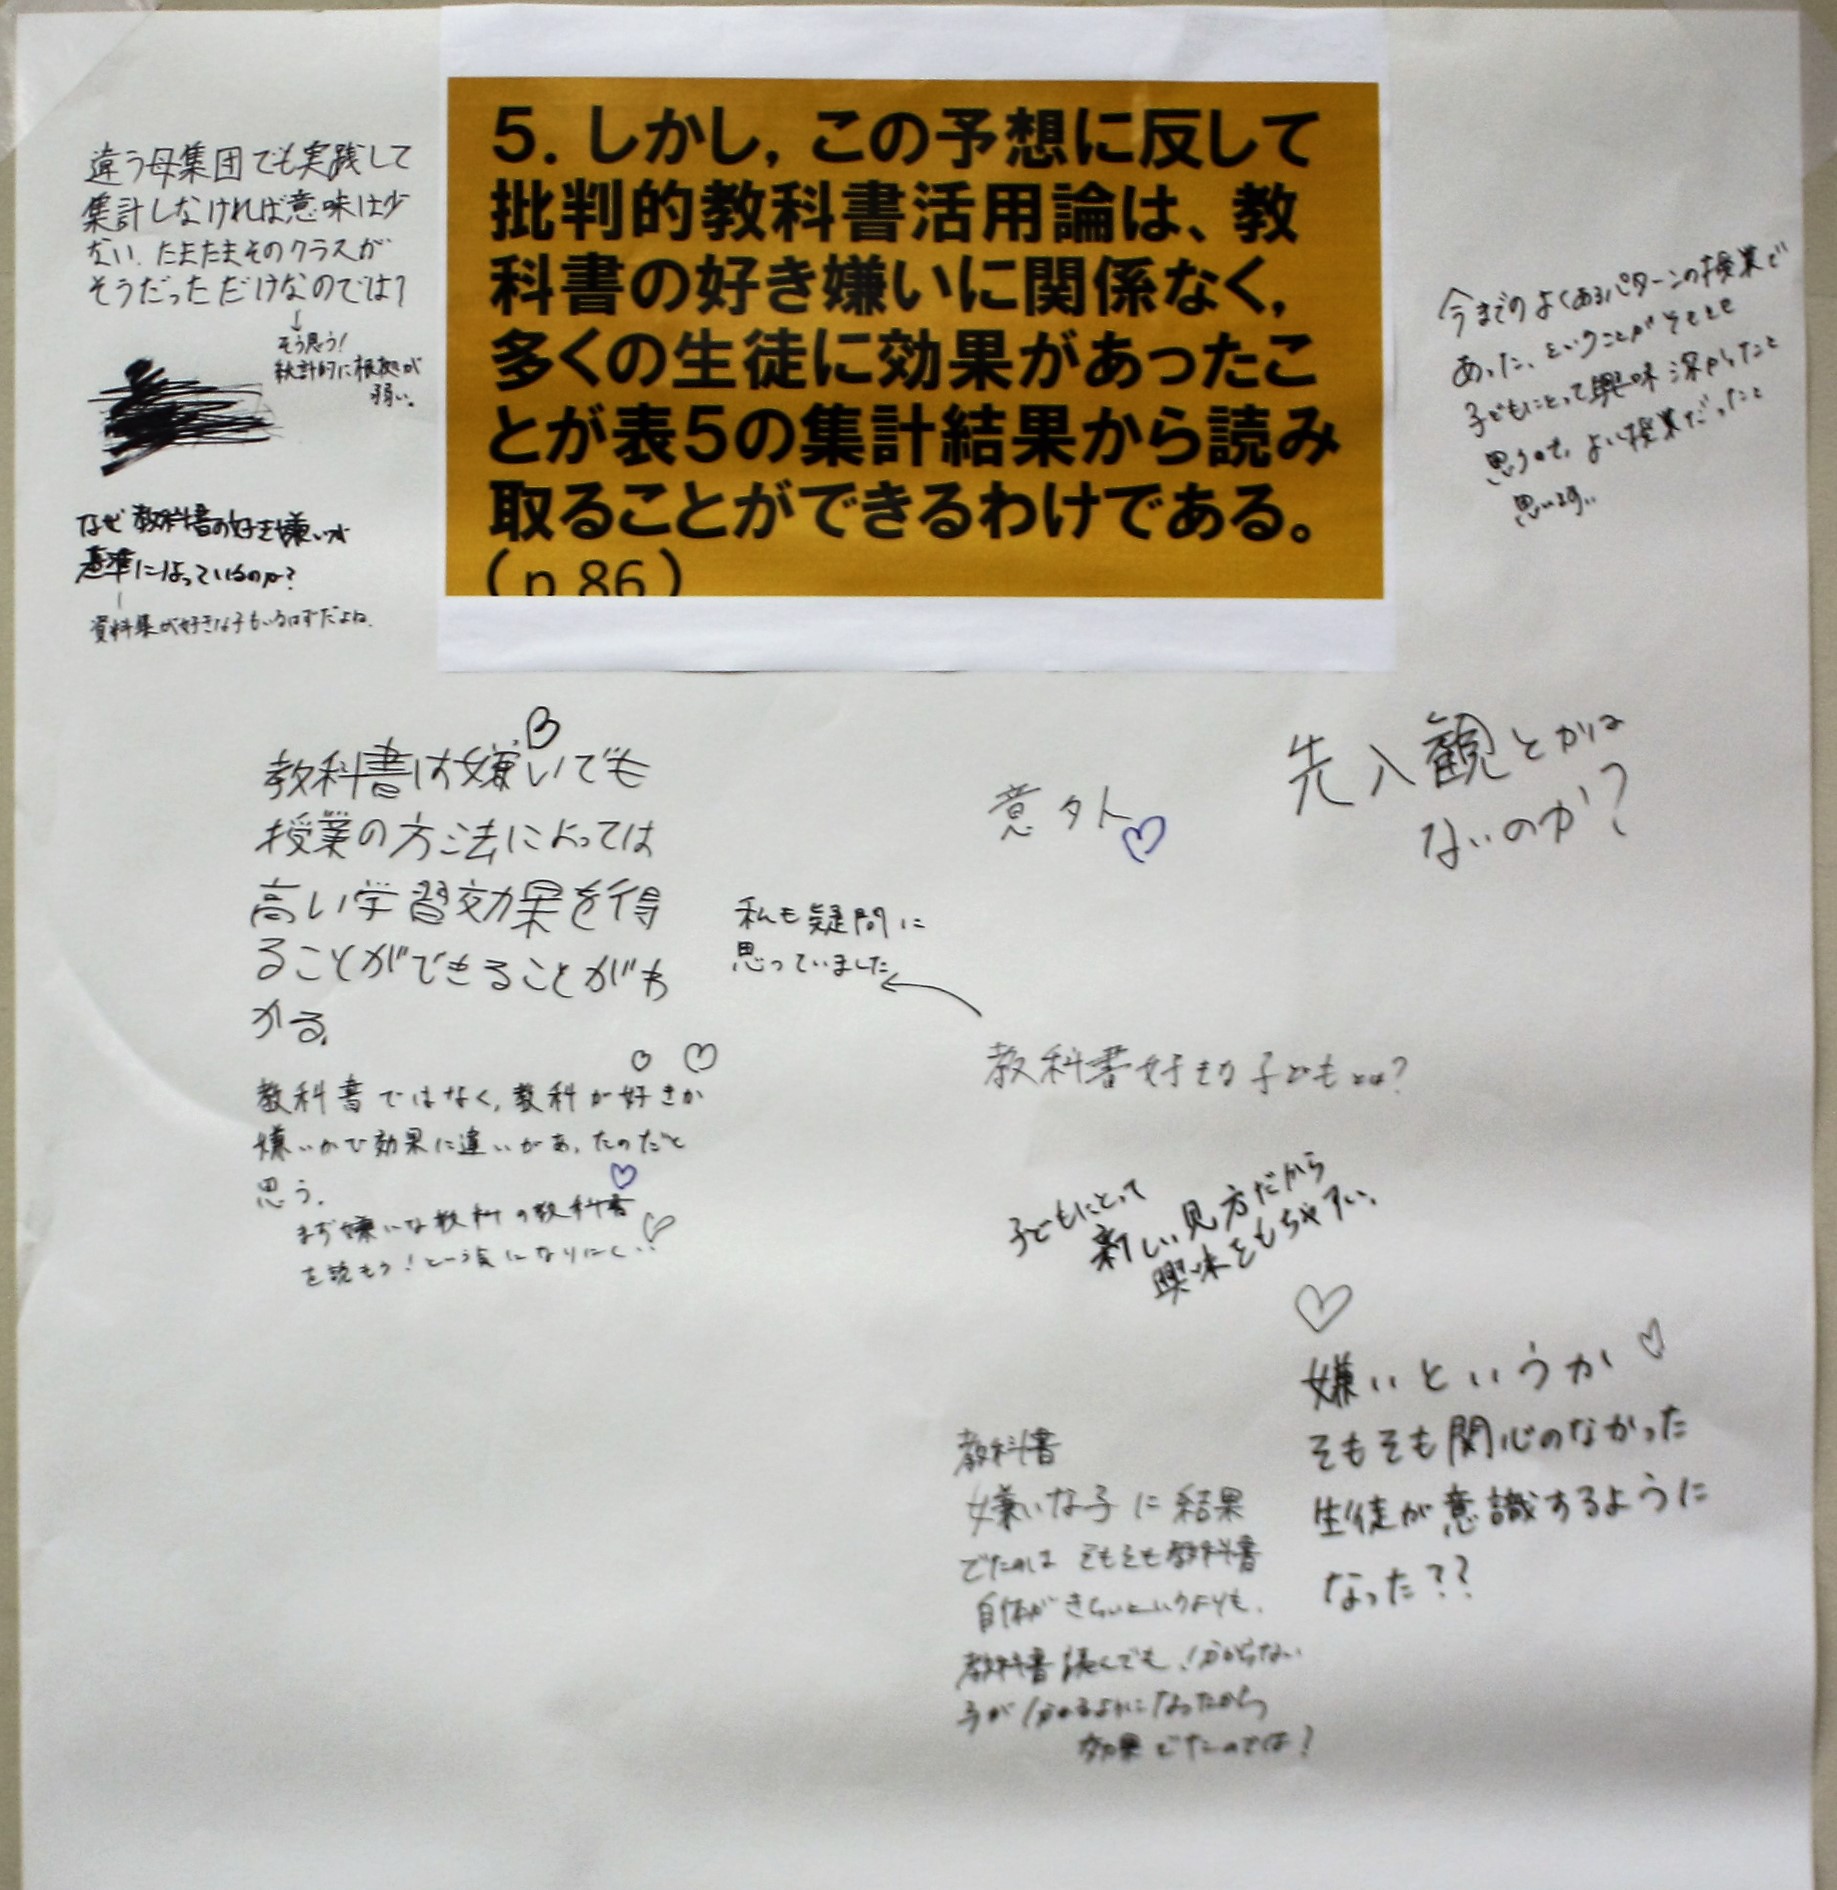 5. しかし，この予想に反して
批判的教科書活用論は、教
科書の好き嫌いに関係なく，
多くの生徒に効果があったこ
とが表5の集計結果から読み
取ることができるわけである。
(p.86)
違う母集団でも実践して
集計しなければ意味は少
ない．たまたまそのクラスが
そうだっただけなのでは？
↓
そう思う！
統計的に根拠が
弱い。
なぜ教科書の好き嫌いが
基準になっているのか？
資料集が好きな子もいるはずだよね．
今までのよくあるパターンの授業で
あった、ということがそもそも
子どもにとって興味深かったと
思うので，よい授業だったと
思います。
教科書は嫌いでも
授業の方法によっては
高い学習効果を得
ることができることがわ
かる．
意外
先入観とかは
ないのか？
私も疑問に
思っていました
教科書好きな子どもとは？
教科書ではなく，教科が好きか
嫌いかで効果に違いがあったのだと
思う．
まず嫌いな教科の教科書
を読もう！という気になりにくい
子どもにとって
新しい見方だから
興味をもちやすい．
嫌いというか
そもそも関心のなかった
生徒が意識するように
なった？？
教科書
嫌いな子に結果
でたのは そもそも教科書
自体がきらいというよりも，
教科書読んでも，分からない
子が分かるようになったから
効果でたのでは？